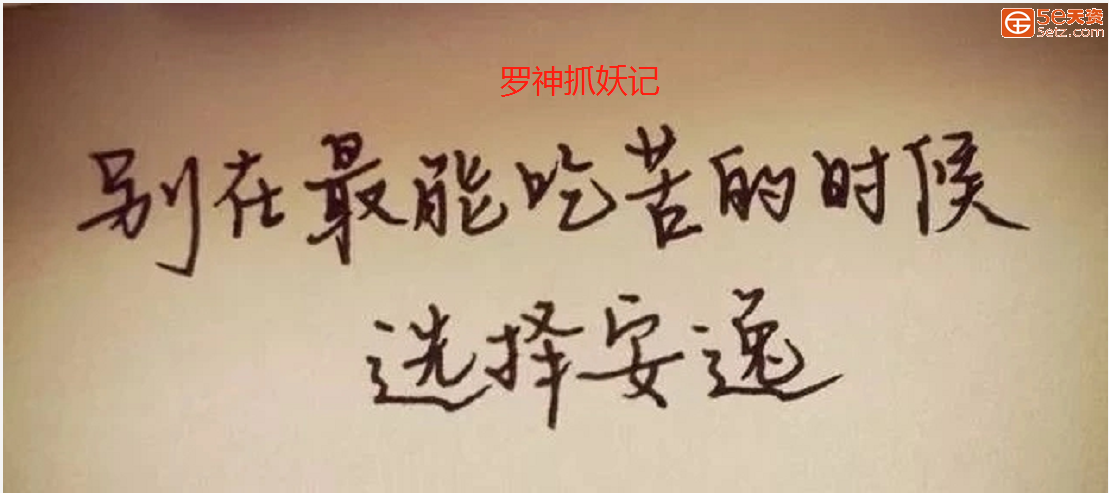 5e天资
5etz.com
罗神抓妖记
别在最能吃苦的时候
选择安逸